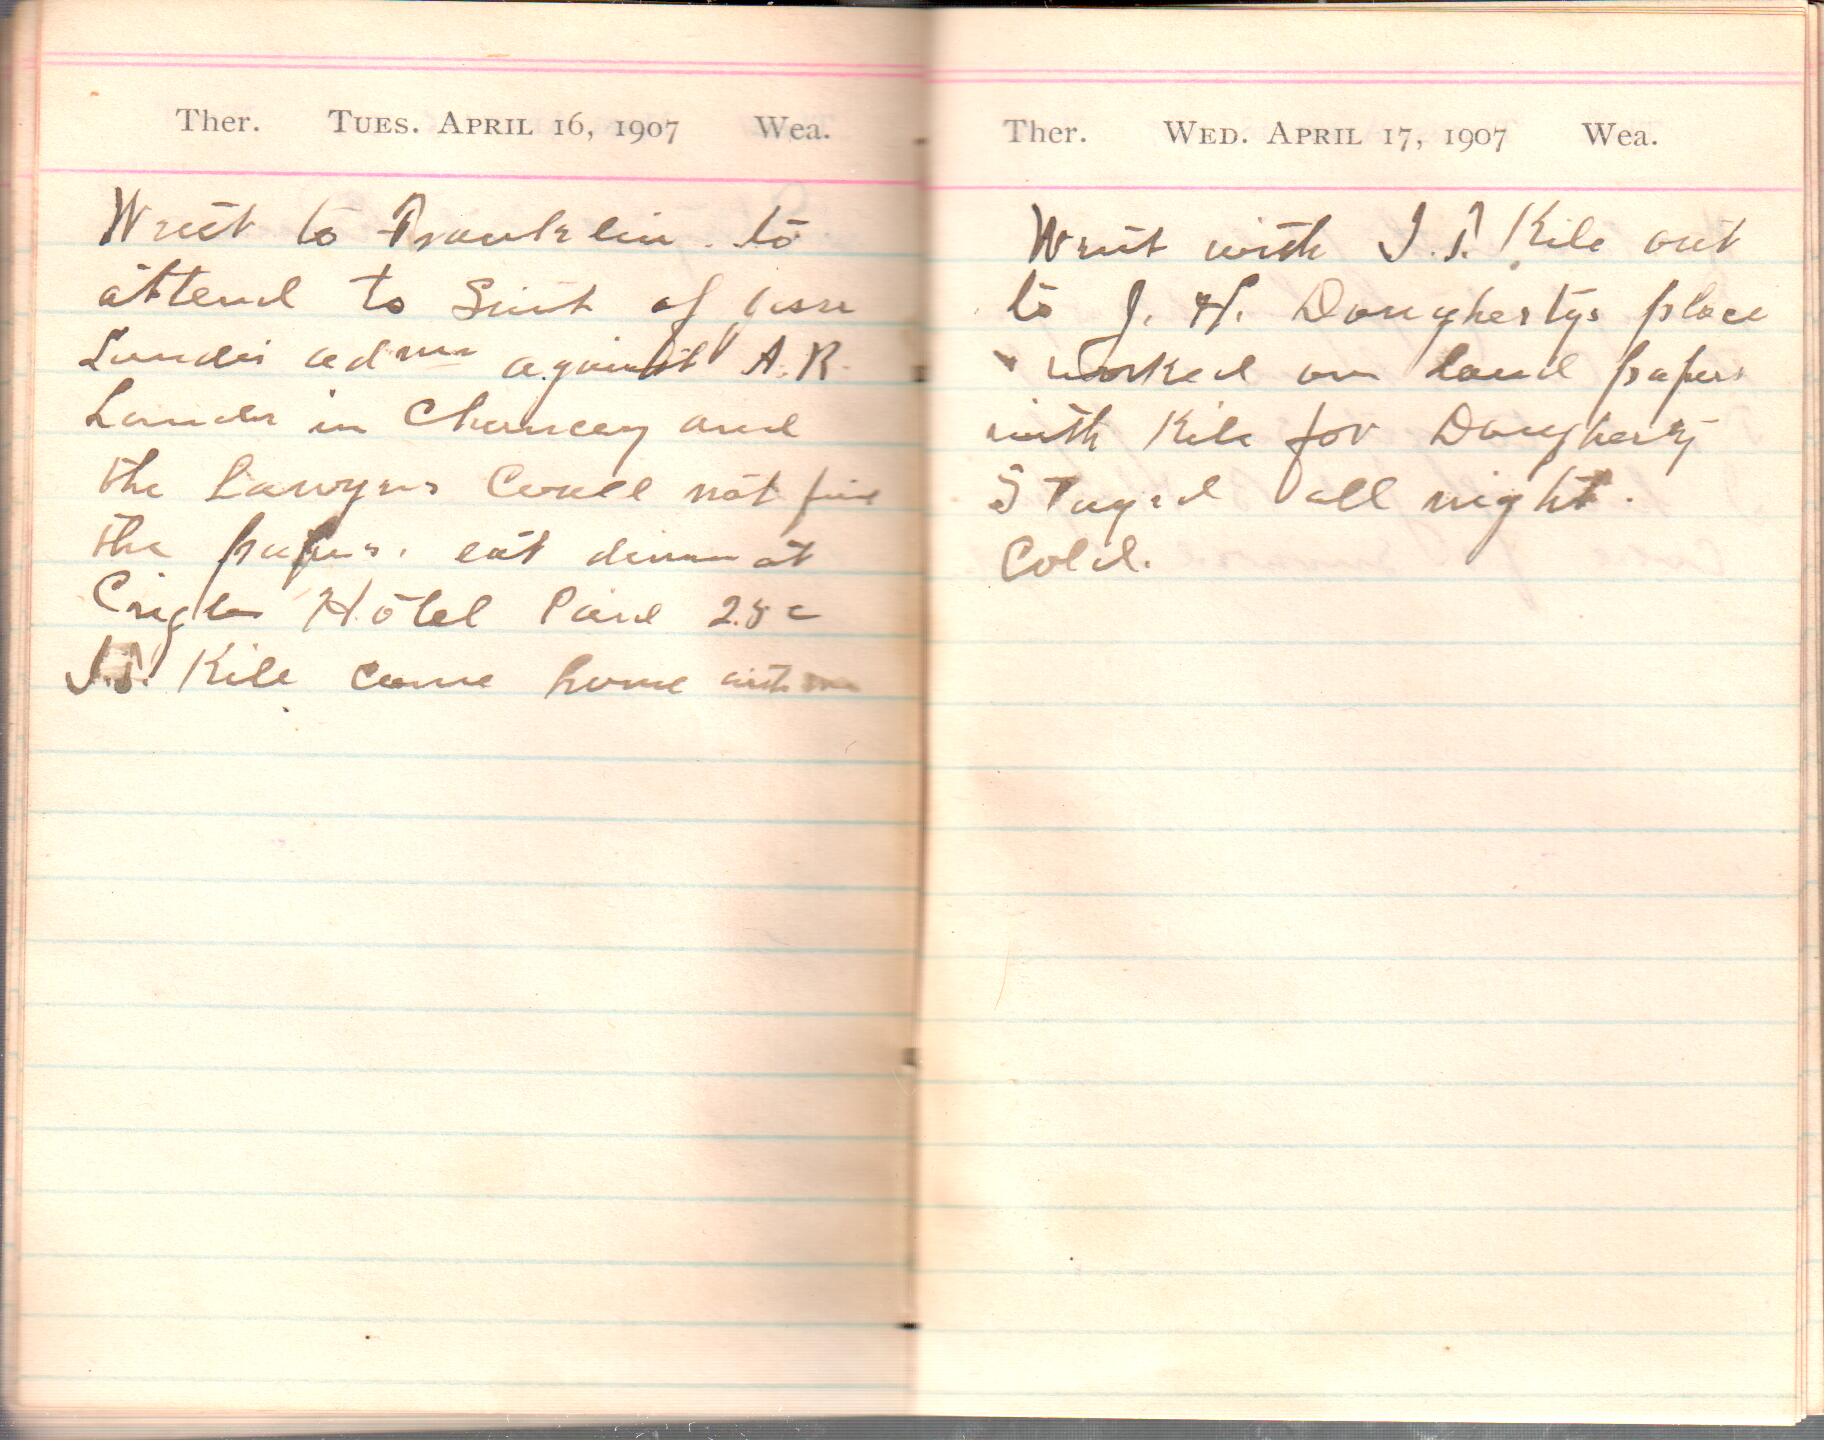 Ther. TUES. APRIL 16, 1907 Wea.
Went to Franklin to
attend to Suit of Jesse
admr against A.R.
in Chancey and
the Lawyers Could not find
the papers. eat dinner at
Hotel Paid 25c
J.T. Kile came home with me
Ther. WED. APRIL 17, 1907 Wea.
Went with J.T. Kile out
to J. H. Doughertys place
worked on land papers
with Kile for Dougherty
Stayed all night.
Cold.